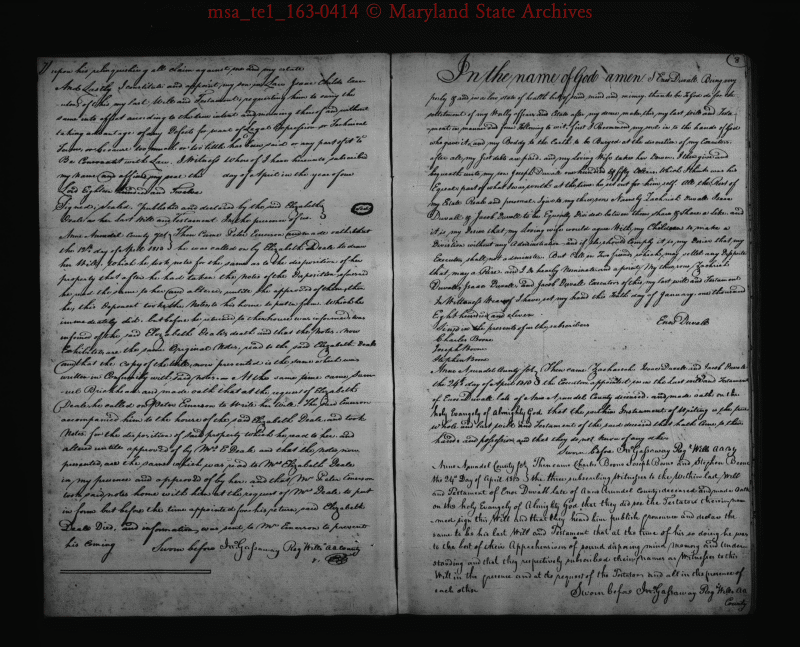 msa_te1_163-0414 © Maryland State Archives
upon his relinquishing all claim against me and my estate
And Lastly I constitute and appoint my son in Law Isaac Childs
of this my last Will and Testament, requesting him to carry the
same into effect according to the true intent and meaning thereof and without
taking advantage of any Defects for want of Legal Expression or Technical
Terms, or because too much or too little has been said or any part of it to
Be Conversant with Law. In Witness Whereof I have hereunto subscribed
my Name and affixed my seal the day of April in the year of our
Lord Eighteen hundred and
Signed, sealed, published and declared by the said Elizabeth
Deale as her Last Will and Testament In the presence of us
Anne Arundel County Sct. Then Came Peter Emerson and made oath that
the 13th day of April 1810 he was called on by Elizabeth Deale to draw
her Will, Which he took notes for the same as to the disposition of her
property that after he had taken the Notes of the Deposition aforesaid
read the same to her and altered, untill she approved of them, when
he, this deponent took the Notes to his home to put in form Which he
immediately did, but before he returned to her house was informed
of the said Elizabeth Deales death and that the Notes, Now
Exhibited are the same Original Notes, read to the said Elizabeth Deale
and that the copy of the Will now presented is the same which was
written in Conformity with said notes. At the same time came Sam
uel Brickhead and made oath that at the request of Elizabeth
Deale he called on Peter Emerson to Write her Will. The said Emerson
accompanied him to the house of the said Elizabeth Deale and took
Notes for the disposition of said property which he read to her and
altered untill approved of by Mrs E Deale and that the notes now
presented, are the same which was read to Mrs Elizabeth Deale
in my presence and approved of by her and that Mr Peter Emerson
took said notes home with him at the request of Mrs Deale to put
in form but before the time appointed for his return, said Elizabeth
Deale Died, and information was sent to Mr Emerson to prevent
his Coming Sworn before Jno Gassaway Reg Wills AA County
8
In the name of God amen I Enos Duvall Being very
poorly & and in a low state of health but of sound mind and memory thanks be to God do for the
settlement of my Worldly affairs and Estate after my decease, make this my last Will and Testa
ment in manner and form following to wit. First I Recommend my soul in to the hands of God
who gave it, and my Body to the Earth to be Buryed at the discretion of my Executors
after all my just debts are paid, and my loving Wife takes her Dower. I then give and
bequeath unto my son Joseph Duvall one hundred & fifty Dollars Which I think was his
Equal part of what I was worth at the time he set out for him self. All the Rest of
my Estate Reale and personal I give to my three sons Namely Zachariah Duvall Isaac
Duvall & Jacob Duvall to be Equally Divided between them share & Share a like and
it is my Desire that my loving wife would agree With my Children to make a
Division without any Administration and if she should comply it is my Desire that my
Executors shall not administer But Call in Two friends which may settle any Dispute
that may a Rise and I do hearby Nominate and a point My three sons Zachariah
Duvall, Isaac Duvall and Jacob Duvall Executors of this my last will and Testament
In Witness Whereof I have set my hand this Tenth day of January one thousand
Eight hundred and eleven
Signed in the presents of us the subscribers Enos Duvall
Charles Boone
Joseph Boone
Stephen Boone
Anne Arundel County Sct. Then came Zachariah Isaac Duvall and Jacob Duvall
the 24th day of April 18 the Executors appointed in as the last will and Testament
of Enos Duvall late of Anne Arundel County deceased, and make oath on the
holy Evangely of almighty God that the within Instrument of Writing is the true
whole and last Will and Testament of the said deceased that hath come to their
hands and possession and that they do not know of any other
Sworn before Jno Gassaway Reg Wills AA Cty
Anne Arundel County Sct. Then came Charles Boone Joseph Boone and Stephen Boone
the 24 Day of April 18 the three subscribing Witnesses to the Within Last Will
and Testament of Enos Duvall late of Anne Arundel County deceased and made Oath
on the holy Evangely of Almighty God that they did see the Testator therein nam
ed sign this Will and that they heard him publish pronounce and declare the
same to be his last Will and Testament that at the time of his so doing he was
to the best of their Apprehension of sound disposing mind, memory and Under
standing and that they respectively subscribed their names as Witnesses to this
Will in the presence and at the request of the Testator and all in the presence of
each other Sworn before Jno Gassaway Reg Wills AA
County